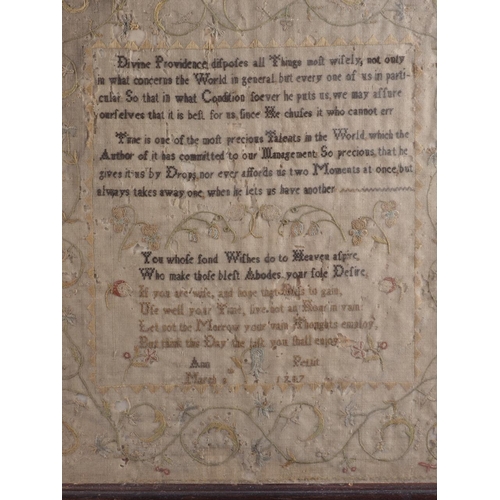 Divine Providence, disposes all Things most wisely, not only
in what concerns the World in general, but every one of us in parti-
cular So that in what Condition soever he puts us, we may assure
ourselves that it is best for us, since He chuses it who cannot err
Time is one of the most precious Talents in the World, which the
Author of it has committed to our Management So precious, that he
gives it us by Drops, nor ever affords us two Moments at once, but
always takes away one, when he lets us have another
You whose fond Wishes do to Heaven aspire,
Who make those blest Abodes, your sole Desire,
If you are wise, and hope that Bliss to gain,
Use well your Time, live not an Hour in vain
Let not the Morrow your vain Thoughts employ,
But think this Day the last you shall enjoy
Ann
March